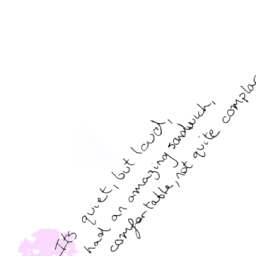 Its quiet, but loud,
had an amazing sandwich,
comfortable, not quite